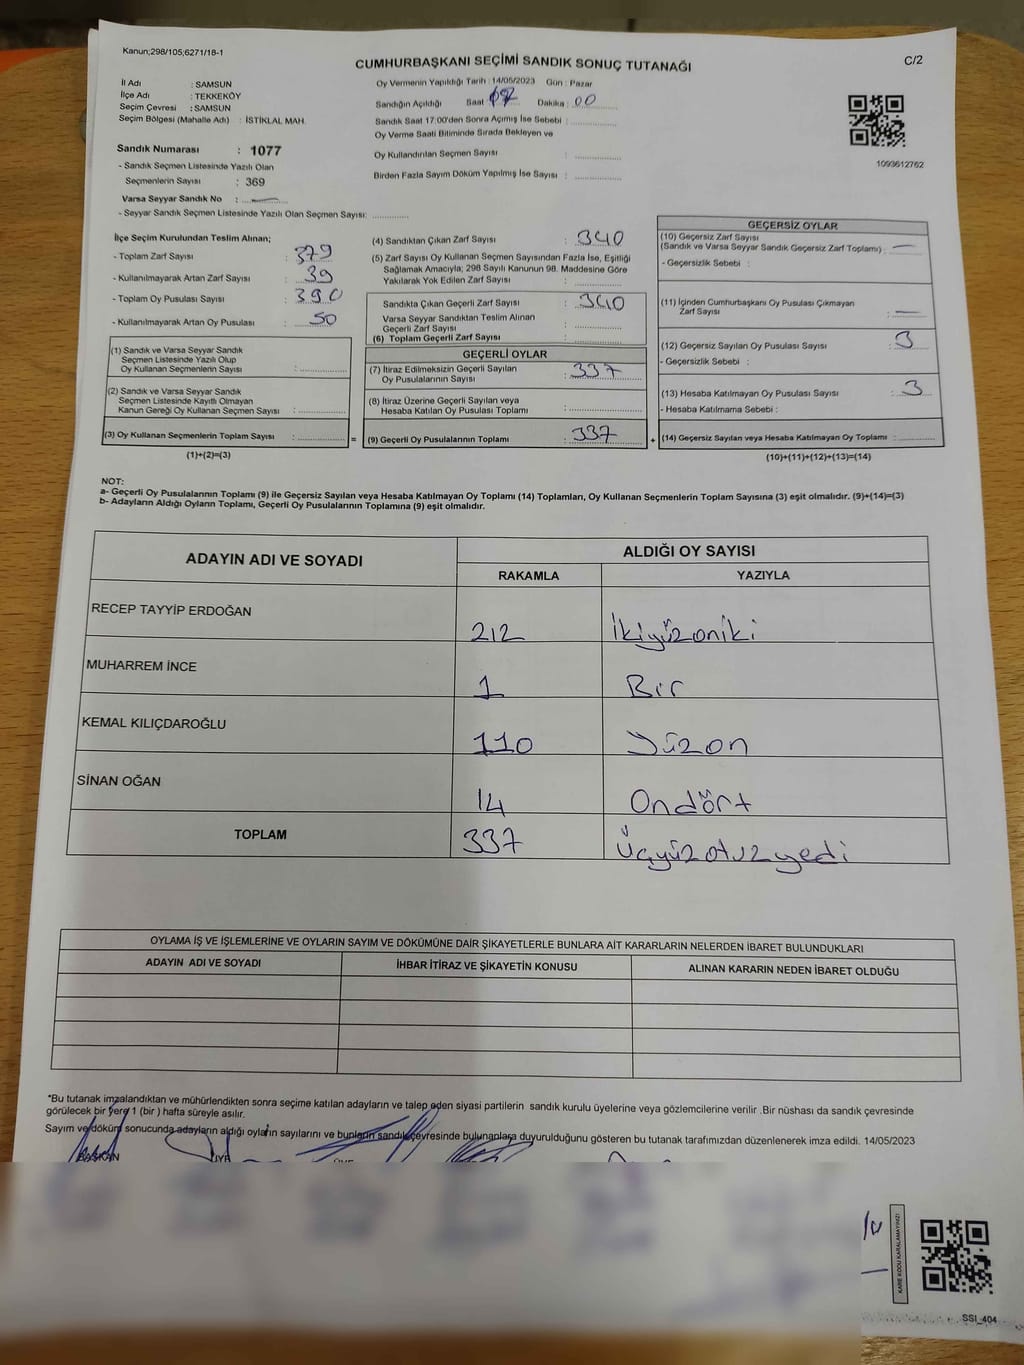 Kanun;298/105;6271/18-1
C/2
CUMHURBAŞKANI SEÇİMİ SANDIK SONUÇ TUTANAĞI
İl Adı : SAMSUN
İlçe Adı : TEKKEKÖY
Seçim Çevresi : SAMSUN
Seçim Bölgesi (Mahalle Adı) : İSTİKLAL MAH.
Oy Vermenin Yapıldığı Tarih : 14/05/2023 Gün : Pazar
Sandığın Açıldığı Saat : 17 Dakika : 00
Sandık Saat 17:00'den Sonra Açımış İse Sebebi :
Oy Verme Saati Bitiminde Sırada Bekleyen ve
Oy Kullandırılan Seçmen Sayısı :
Birden Fazla Sayım Döküm Yapılmış İse Sayısı :
1093612762
Sandık Numarası : 1077
- Sandık Seçmen Listesinde Yazılı Olan
Seçmenlerin Sayısı : 369
Varsa Seyyar Sandık No : —
- Seyyar Sandık Seçmen Listesinde Yazılı Olan Seçmen Sayısı:
İlçe Seçim Kurulundan Teslim Alınan;
- Toplam Zarf Sayısı : 379
- Kullanılmayarak Artan Zarf Sayısı : 39
- Toplam Oy Pusulası Sayısı : 390
- Kullanılmayarak Artan Oy Pusulası : 50
(1) Sandık ve Varsa Seyyar Sandık
Seçmen Listesinde Yazılı Olup
Oy Kullanan Seçmenlerin Sayısı :
(2) Sandık ve Varsa Seyyar Sandık
Seçmen Listesinde Kayıtlı Olmayan
Kanun Gereği Oy Kullanan Seçmen Sayısı :
(3) Oy Kullanan Seçmenlerin Toplam Sayısı :
(1)+(2)=(3)
(4) Sandıktan Çıkan Zarf Sayısı : 340
(5) Zarf Sayısı Oy Kullanan Seçmen Sayısından Fazla İse, Eşitliği
Sağlamak Amacıyla; 298 Sayılı Kanunun 98. Maddesine Göre
Yakılarak Yok Edilen Zarf Sayısı :
Sandıkta Çıkan Geçerli Zarf Sayısı : 340
Varsa Seyyar Sandıktan Teslim Alınan
Geçerli Zarf Sayısı :
(6) Toplam Geçerli Zarf Sayısı :
GEÇERLİ OYLAR
(7) İtiraz Edilmeksizin Geçerli Sayılan
Oy Pusulalarının Sayısı : 337
(8) İtiraz Üzerine Geçerli Sayılan veya
Hesaba Katılan Oy Pusulası Toplamı :
= (9) Geçerli Oy Pusulalarının Toplamı : 337
GEÇERSİZ OYLAR
(10) Geçersiz Zarf Sayısı
(Sandık ve Varsa Seyyar Sandık Geçersiz Zarf Toplamı) : —
- Geçersizlik Sebebi :
(11) İçinden Cumhurbaşkanı Oy Pusulası Çıkmayan
Zarf Sayısı : —
(12) Geçersiz Sayılan Oy Pusulası Sayısı : 3
- Geçersizlik Sebebi :
(13) Hesaba Katılmayan Oy Pusulası Sayısı : 3
- Hesaba Katılmama Sebebi :
+ (14) Geçersiz Sayılan veya Hesaba Katılmayan Oy Toplamı :
(10)+(11)+(12)+(13)=(14)
NOT:
a- Geçerli Oy Pusulalarının Toplamı (9) ile Geçersiz Sayılan veya Hesaba Katılmayan Oy Toplamı (14) Toplamları, Oy Kullanan Seçmenlerin Toplam Sayısına (3) eşit olmalıdır. (9)+(14)=(3)
b- Adayların Aldığı Oyların Toplamı, Geçerli Oy Pusulalarının Toplamına (9) eşit olmalıdır.
ADAYIN ADI VE SOYADI
ALDIĞI OY SAYISI
RAKAMLA YAZIYLA
RECEP TAYYİP ERDOĞAN 212 İkiyüzoniki
MUHARREM İNCE 1 Bir
KEMAL KILIÇDAROĞLU 110 Yüzon
SİNAN OĞAN 14 Ondört
TOPLAM 337 Üçyüzotuzyedi
OYLAMA İŞ VE İŞLEMLERİNE VE OYLARIN SAYIM VE DÖKÜMÜNE DAİR ŞİKAYETLERLE BUNLARA AİT KARARLARIN NELERDEN İBARET BULUNDUKLARI
ADAYIN ADI VE SOYADI İHBAR İTİRAZ VE ŞİKAYETİN KONUSU ALINAN KARARIN NEDEN İBARET OLDUĞU
*Bu tutanak imzalandıktan ve mühürlendikten sonra seçime katılan adayların ve talep eden siyasi partilerin sandık kurulu üyelerine veya gözlemcilerine verilir .Bir nüshası da sandık çevresinde
görülecek bir yere 1 (bir ) hafta süreyle asılır.
Sayım ve döküm sonucunda adayların aldığı oyların sayılarını ve bunların sandık çevresinde bulunanlara duyurulduğunu gösteren bu tutanak tarafımızdan düzenlenerek imza edildi. 14/05/2023
BAŞKAN
KARE KODU KARALAMAYINIZ!
SSI_404